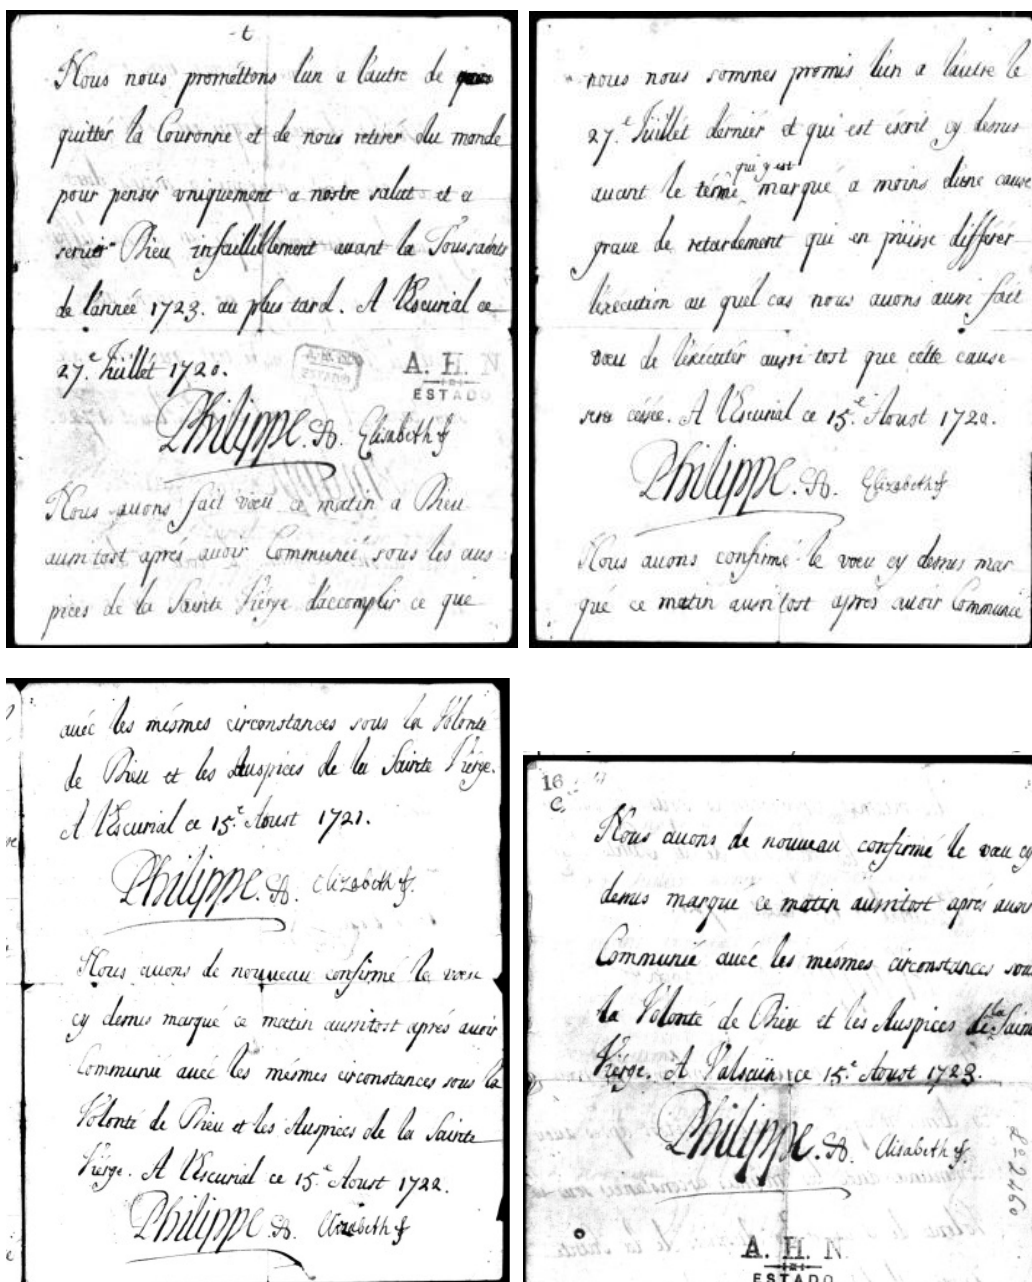 t
Nous nous promettons lun a lautre de
quitter la Couronne et de nous retirer du monde
pour penser vniquement a nostre salut et a
seruir Dieu infailliblement auant la Toussaints
de lannée 1723. au plus tard. A l'Escurial ce
27.e Juillet 1720.
A. H. N
ESTADO
Philippe. Elisabeth
Nous auons fait voeu ce matin a Dieu
aussitost aprés auoir Communié sous les aus
pices de la Sainte Vierge daccomplir ce que
nous nous sommes promis lun a lautre le
27.e Juillet dernier et qui est escrit cy dessus
auant le terme qui y est marqué a moins dune cause
graue de retardement qui en puisse differer
lexecution au quel cas nous auons aussi fait
voeu de lexecuter aussi tost que cette cause
sera cessée. A l'Escurial ce 15.e Aoust 1720.
Philippe. Elizabeth
Nous auons confirmé le voeu cy dessus mar
qué ce matin aussitost aprés auoir Communié
auéc les mésmes circonstances sous la Volonté
de Dieu et les Auspices de la Sainte Vierge.
A l'Escurial ce 15.e Aoust 1721.
Philippe. Elizabeth
Nous auons de nouueau confirmé le voeu
cy dessus marqué ce matin aussitost aprés auoir
Communié auéc les mésmes circonstances sous la
Volonté de Dieu et les Auspices de la Sainte
Vierge. A l'Escurial ce 15.e Aoust 1722.
Philippe. Elizabeth
16
C.
Nous auons de nouueau confirmé le voeu cy
dessus marqué ce matin aussitost aprés auoir
Communié auéc les mésmes circonstances sous
la Volonté de Dieu et les Auspices de la Sainte
Vierge. A Valsaïn ce 15.e Aoust 1723.
Philippe. Elisabeth
A. H. N
ESTADO